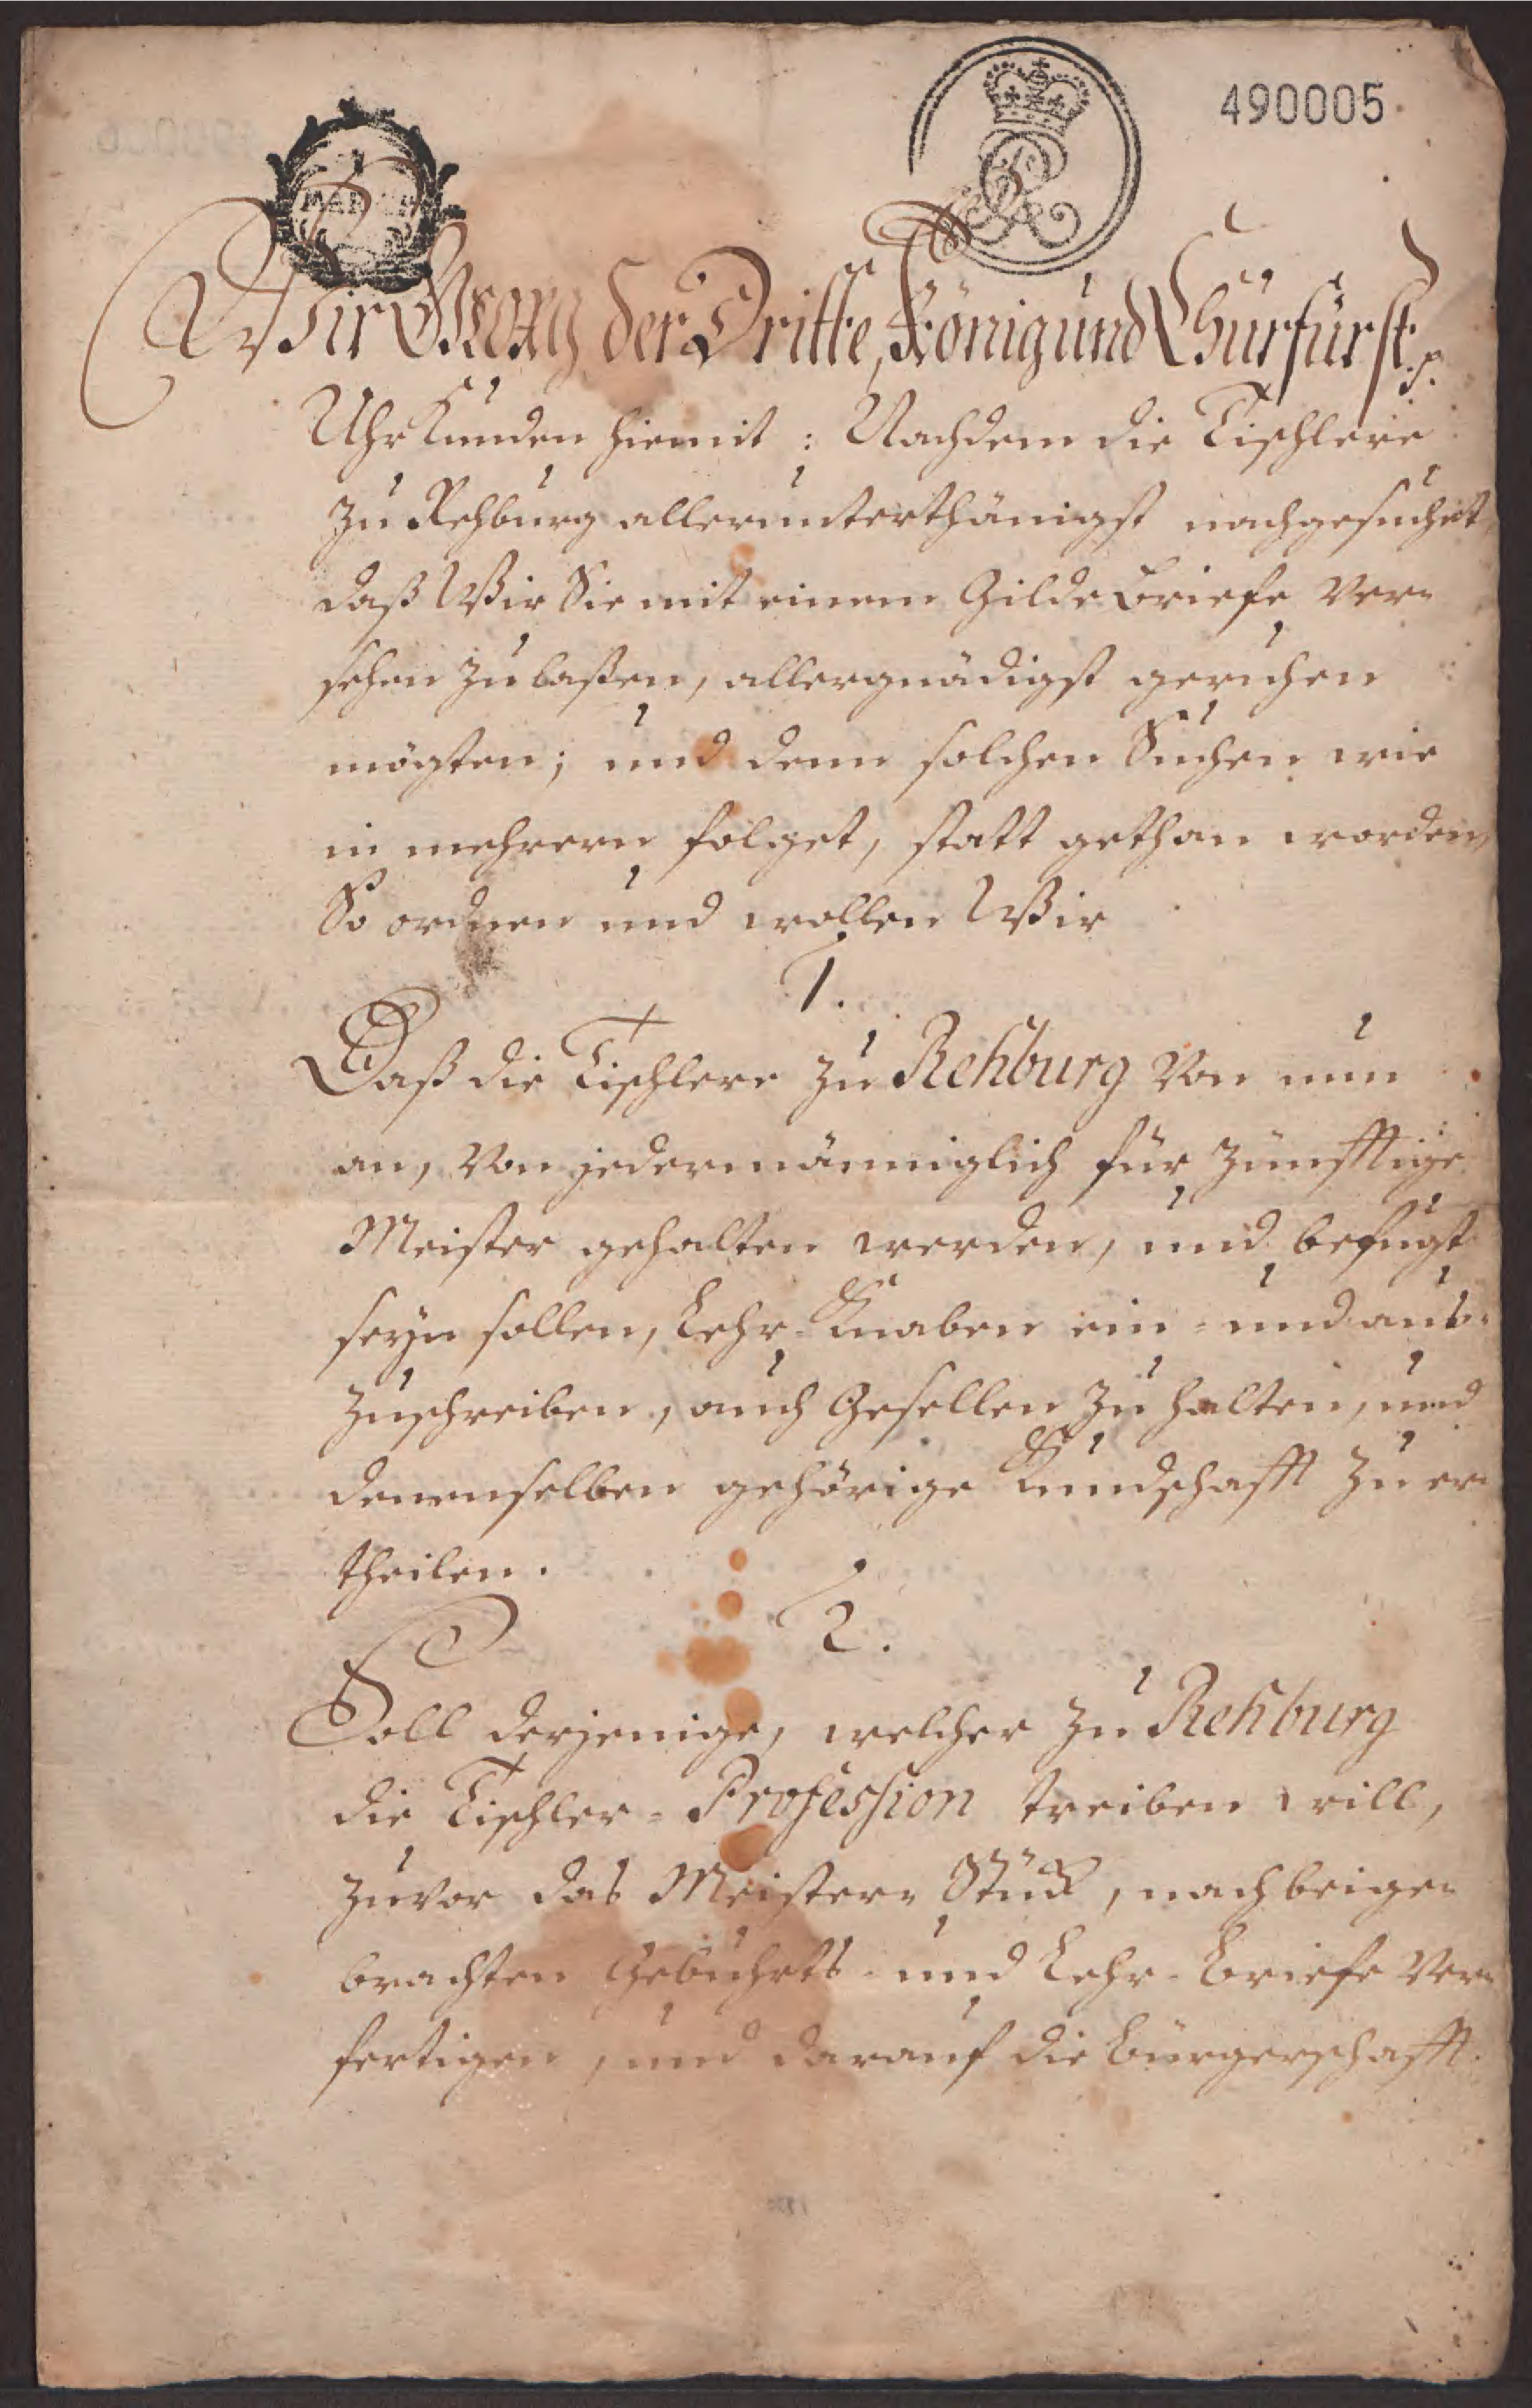 490005
Wir Georg der Dritte, König und Churfürst p.
Uhrkunden hiemit: Nachdem die Tischlere
zu Rehburg allerunterthänigst nachgesuchet,
daß Wir Sie mit einem Gilde Briefe ver-
sehen zu laßen, allergnädigst geruhen
mögten; und denn solchen Suchen wie
in mehrern folget, statt gethan worden,
So ordnen und wollen Wir
1.
Daß die Tischlere zu Rehburg von nun
an, von jedermänniglich für zünfftige
Meister gehalten werden, und befugt
seyn sollen, Lehr-Knaben ein- und aus-
zuschreiben, auch Gesellen zu halten, und
denenselben gehörige Kundschafft zu er-
theilen.
2.
Soll derjenige, welcher zu Rehburg
die Tischler-Profession treiben will,
zuvor das Meister-Stück, nach beige-
brachten Gebuhrts- und Lehr-Briefe ver-
fertigen, und darauf die Bürgerschafft